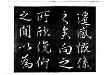 遷感慨係
之矣向之
所欣俛仰
之間以為